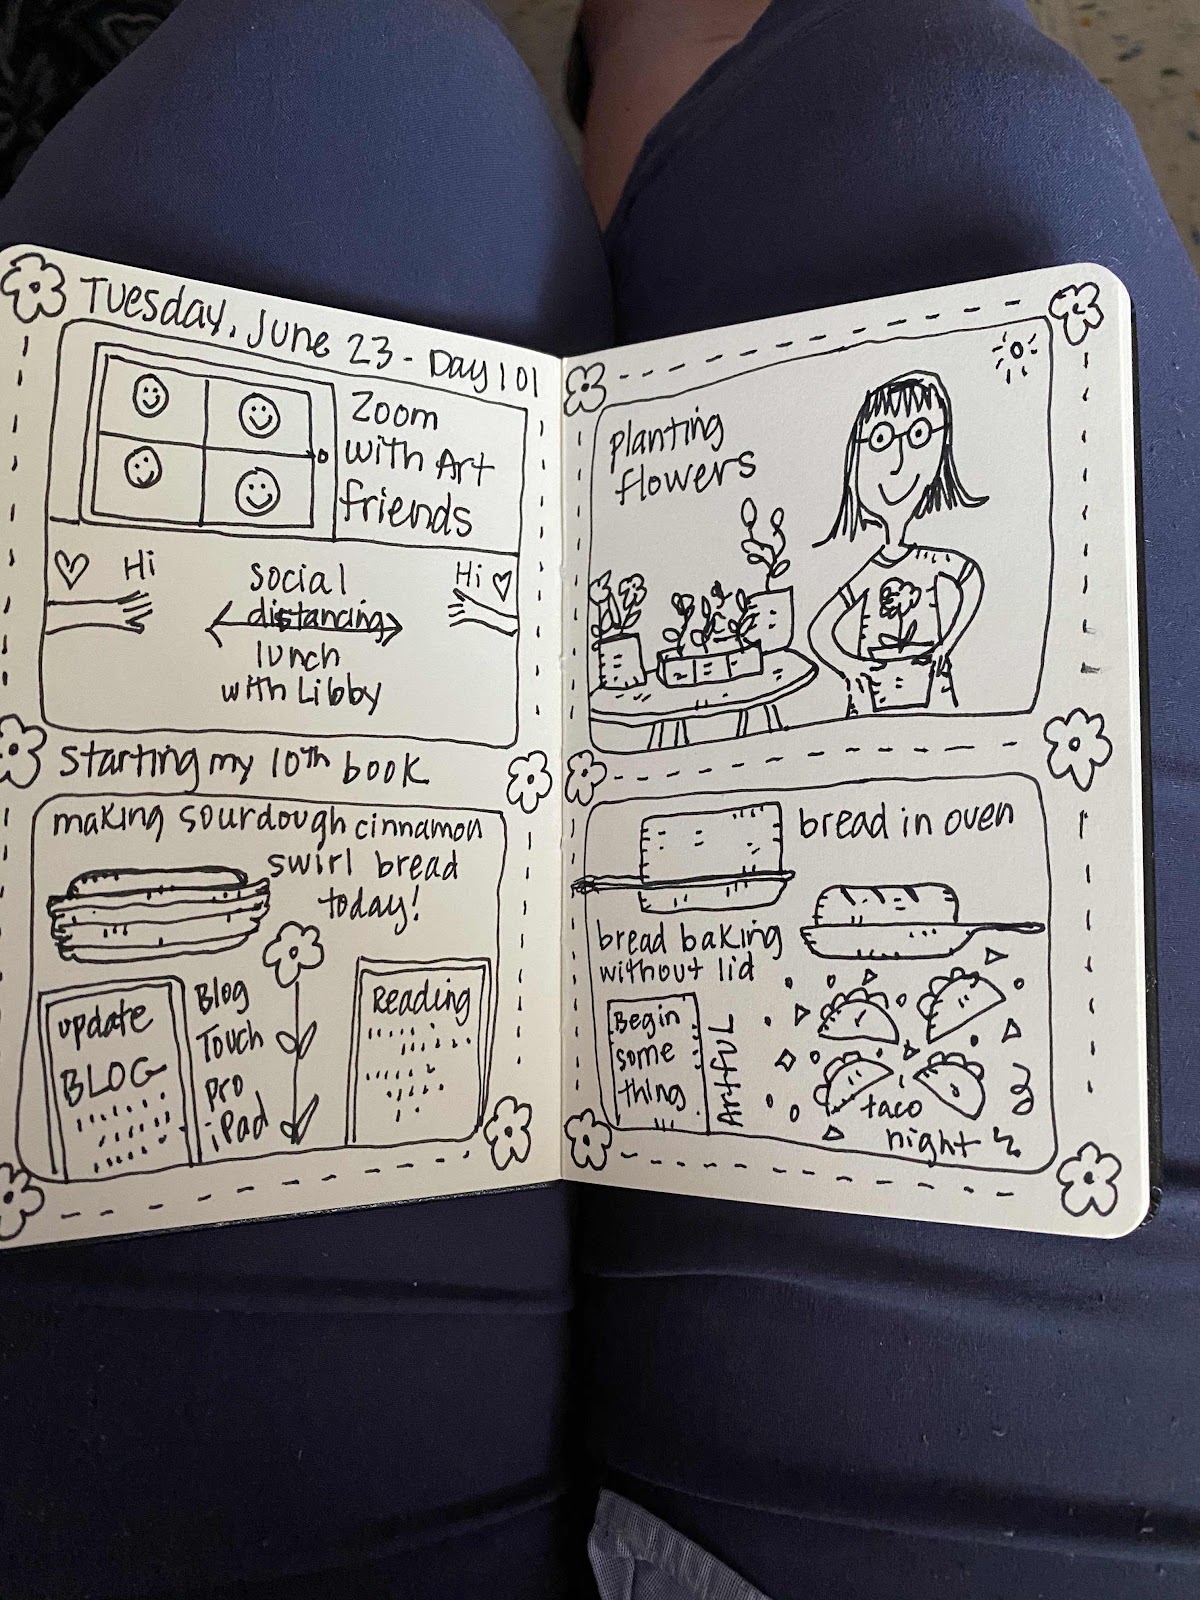 Tuesday, June 23 - Day 101
Zoom
with Art
friends
Hi
Hi
social
distancing
lunch
with Libby
starting my 10th book
making sourdough cinnamon
swirl bread
today!
update
BLOG
Blog
Touch
pro
iPad
Reading
planting
flowers
bread in oven
bread baking
without lid
Begin
some
thing
Artful
taco
night